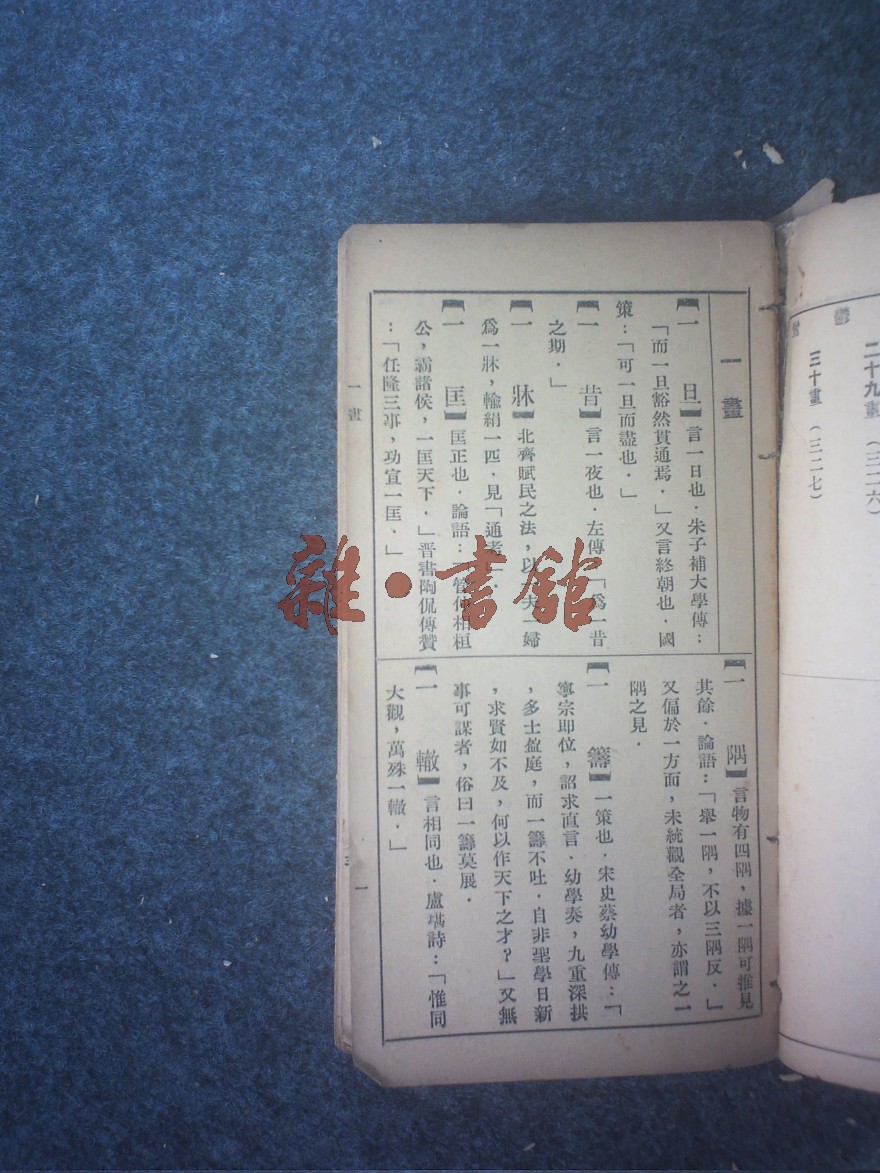 一畫
【一旦】言一日也．朱子補大學傳：
「而一旦豁然貫通焉．」又言終朝也．國
策：「可一旦而盡也．」
【一昔】言一夜也．左傳「爲一昔
之期．」
【一牀】北齊賦民之法，以一夫一婦
爲一牀，輸絹一匹．見「通考」．
【一匡】匡正也．論語：「管仲相桓
公，霸諸侯，一匡天下．」晋書陶侃傳贊
：「任隆三事，功宣一匡．」
【一隅】言物有四隅，據一隅可推見
其餘．論語：「舉一隅，不以三隅反．」
又偏於一方面，未統觀全局者，亦謂之一
隅之見．
【一籌】一策也．宋史蔡幼學傳：「
寧宗即位，詔求直言、幼學奏，九重深拱
，多士盈庭，而一籌不吐．自非聖學日新
，求賢如不及，何以作天下之才？」又無
事可謀者，俗曰一籌莫展．
【一轍】言相同也．盧堪詩：「惟同
大觀，萬殊一轍．」
一畫
一
二十九畫（三二六）
三十畫（三二七）
雜·書館